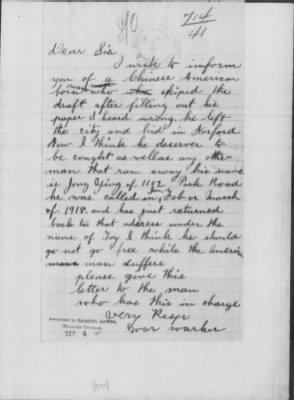 714
41
Dear Sir
I write to imform
you of a Chinese American
born man who skiped the
draft after filling out his
paper I heard wrong. he left
the city and hid in Norford
Now I think he deserver to
be cought as wellas any other
man that ran away his name
is Jong Ging of 1192 Park Road
he was called in Jan, Feb or March
of 1918. and has just returned
back to that address under the
name of Toy I think he should
go not go free while the American
man suffers
please give this
letter to the man
who has this in charge
Very Respr
war warker
SEP 4